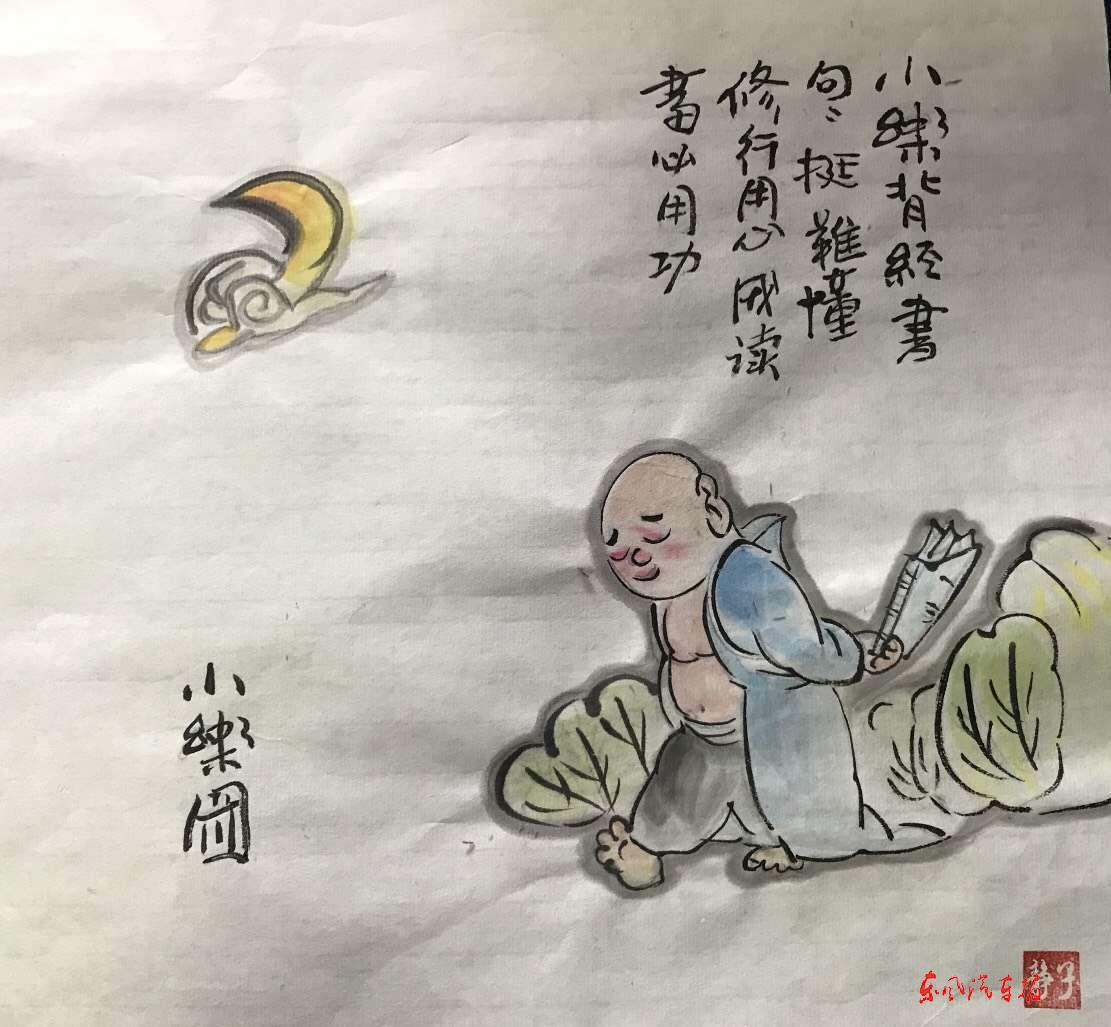 小樂背經書
句〻挺難懂
修行用心读
書必用功
小樂圖
东风汽车